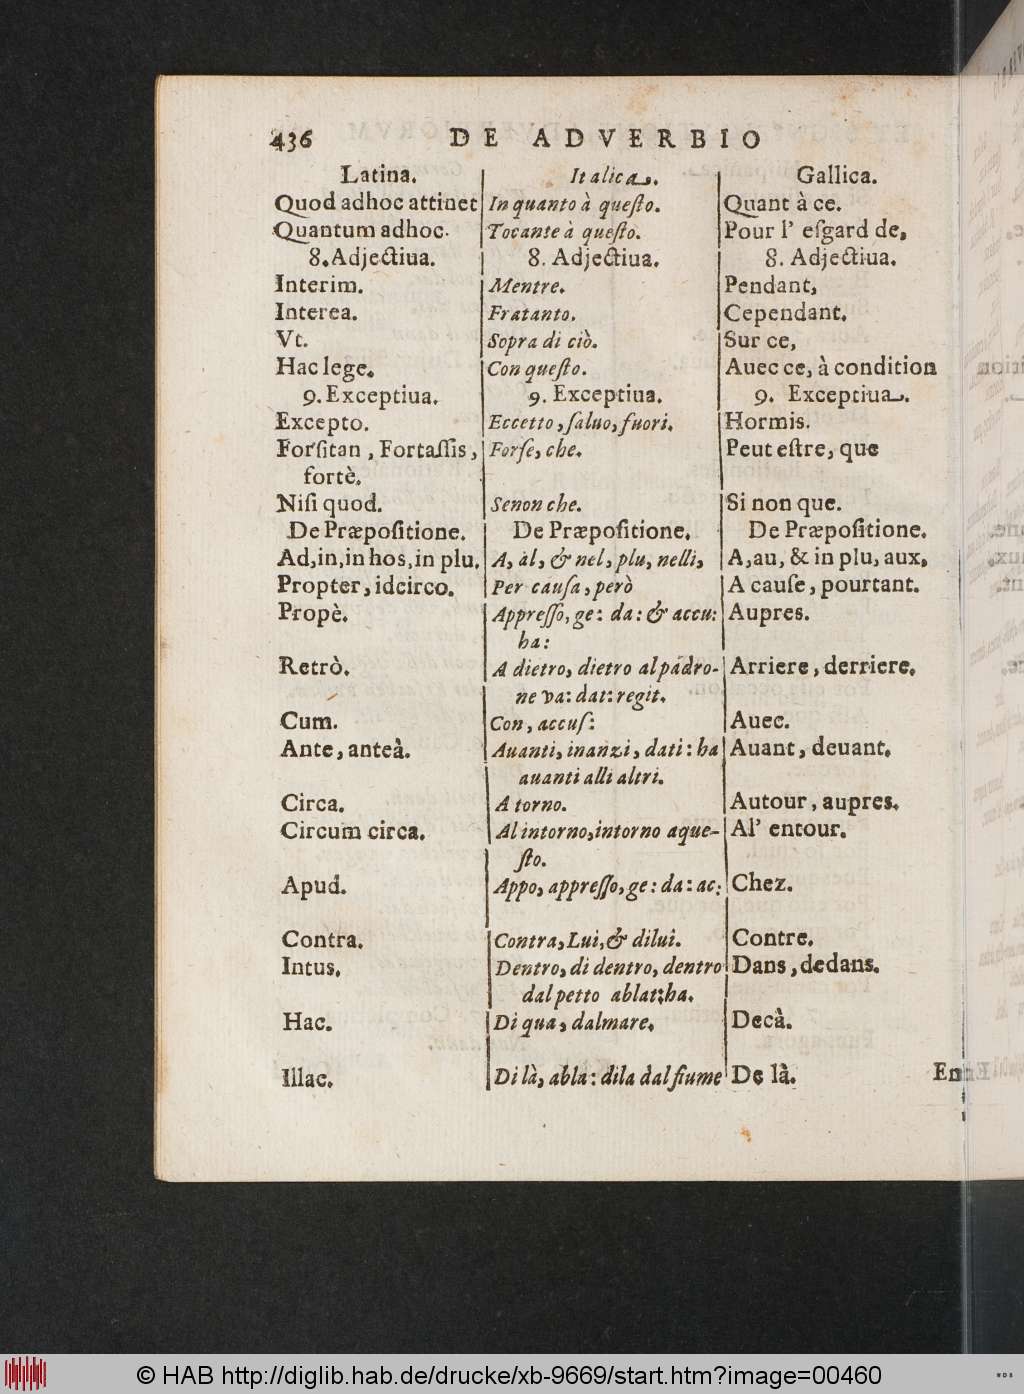 436 DE ADVERBIO
Latina. Italica. Gallica.
Quod adhoc attinet In quanto à queſto. Quant à ce.
Quantum adhoc. Tocante à queſto. Pour l' eſgard de,
8. Adjectiua. 8. Adjectiua. 8. Adjectiua.
Interim. Mentre. Pendant,
Interea. Fratanto. Cependant.
Vt. Sopra di ciò. Sur ce,
Hac lege. Con queſto. Auec ce, à condition
9. Exceptiua. 9. Exceptiua. 9. Exceptiua.
Excepto. Eccetto, ſaluo, fuori. Hormis.
Forſitan, Fortaſſis, Forſe, che. Peut eſtre, que
fortè.
Niſi quod. Senon che. Si non que.
De Præpoſitione. De Præpoſitione. De Præpoſitione.
Ad, in, in hos, in plu. A, al, & nel, plu, nelli, A, au, & in plu, aux,
Propter, idcirco. Per cauſa, però A cauſe, pourtant.
Propè. Appreſſo, ge: da: & accu: Aupres.
ha:
Retrò. A dietro, dietro al padro- Arriere, derriere.
ne va: dat: regit.
Cum. Con, accuſ: Auec.
Ante, anteà. Auanti, inanzi, dati: ha Auant, deuant.
auanti alli altri.
Circa. A torno. Autour, aupres.
Circum circa. Al intorno, intorno aque- Al' entour.
ſto.
Apud. Appo, appreſſo, ge: da: ac: Chez.
Contra. Contra, Lui, & dilui. Contre.
Intus. Dentro, di dentro, dentro Dans, dedans.
dal petto ablat: ha.
Hac. Di qua, dalmare. Decà.
Illac. Di là, abla: dila dal fiume De là.
En
© HAB http://diglib.hab.de/drucke/xb-9669/start.htm?image=00460